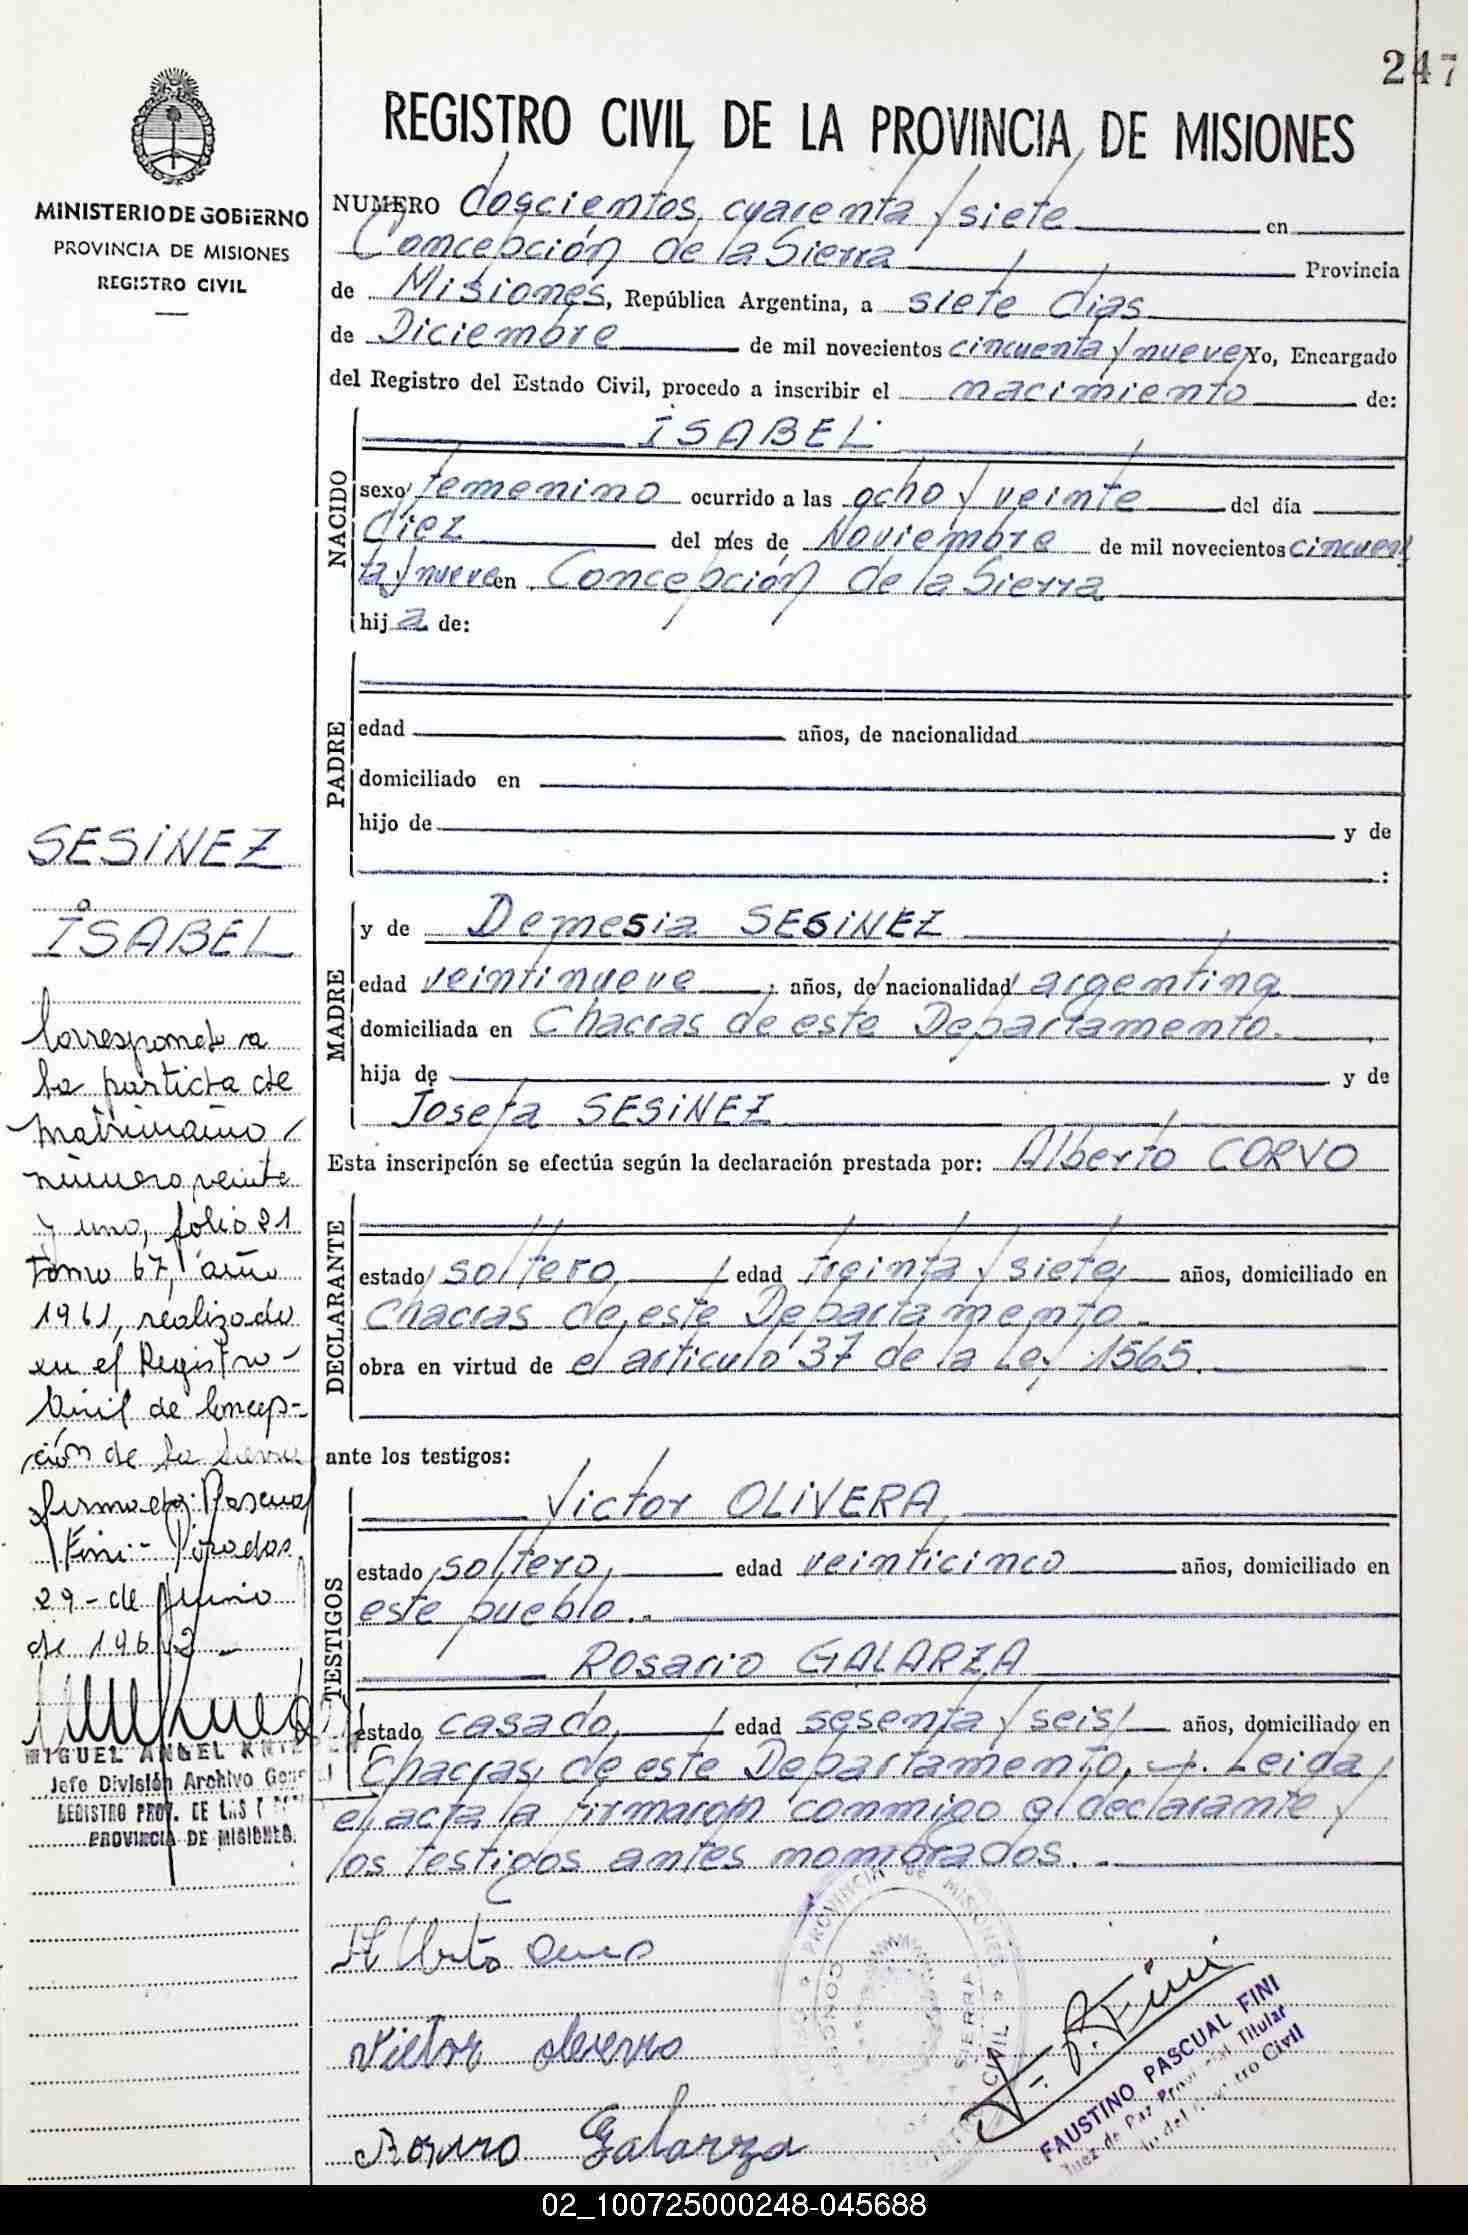 247
REGISTRO CIVIL DE LA PROVINCIA DE MISIONES
MINISTERIO DE GOBIERNO
PROVINCIA DE MISIONES
REGISTRO CIVIL
NUMERO doscientos cuarenta y siete en
Concepción de la Sierra Provincia
de Misiones, República Argentina, a siete dias
de Diciembre de mil novecientos cincuenta y nueve Yo, Encargado
del Registro del Estado Civil, procedo a inscribir el nacimiento de:
NACIDO
ISABEL
sexo femenino ocurrido a las ocho y veinte del día
diez del mes de Noviembre de mil novecientos cincuen
ta y nueve en Concepción de la Sierra
hija de:
PADRE
edad años, de nacionalidad
domiciliado en
hijo de y de
:
SESINEZ
ISABEL
MADRE
y de Demesia SESINEZ
edad veintinueve, años, de nacionalidad argentina
domiciliada en Chacras de este Departamento.
hija de y de
Josefa SESINEZ
Esta inscripción se efectúa según la declaración prestada por: Alberto CORVO
DECLARANTE
estado soltero, edad treinta y siete años, domiciliado en
Chacras de este Departamento.
obra en virtud de el articulo 37 de la Ley 1565.
ante los testigos:
TESTIGOS
Victor OLIVERA
estado soltero, edad veinticinco años, domiciliado en
este pueblo.
Rosario GALARZA
estado casado, edad sesenta y seis años, domiciliado en
Chacras de este Departamento. Leida
el acta la firmaron conmigo el declarante y
los testigos antes mombrados.
Corresponde a
la partida de
matrimonio
número veinte
y uno, fólio 21
tomo 67, año
1961, realizado
en el Registro
Civil de Concep-
ción de la Sierra
firmado: Pascual
Fini - Posadas
29 - de Junio
de 1962
MIGUEL ANGEL
Jefe División Archivo
REGISTRO PROV. DE LAS
PROVINCIA DE MISIONES.
PROVINCIA DE MISIONES
SIERRA
CIVIL
Victor
Rosario Galarza
F. P. Fini
FAUSTINO PASCUAL FINI
Juez de Paz Titular
del Registro Civil
02_100725000248-045688